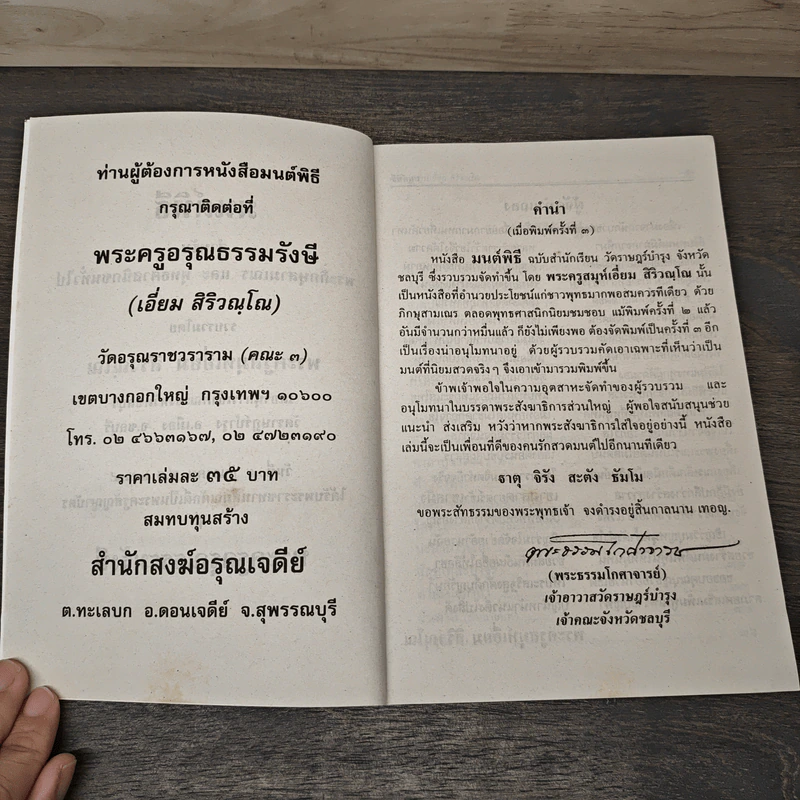 ท่านผู้ต้องการหนังสือมนต์พิธี
กรุณาติดต่อที่
พระครูอรุณธรรมรังษี
(เอี่ยม สิริวณฺโณ)
วัดอรุณราชวราราม (คณะ ๓)
เขตบางกอกใหญ่ กรุงเทพฯ ๑๐๖๐๐
โทร. ๐๒ ๔๖๖๓๑๖๗, ๐๒ ๔๗๒๓๑๙๐
ราคาเล่มละ ๓๕ บาท
สมทบทุนสร้าง
สำนักสงฆ์อรุณเจดีย์
ต.ทะเลบก อ.ดอนเจดีย์ จ.สุพรรณบุรี
คำนำ
(เมื่อพิมพ์ครั้งที่ ๓)
หนังสือ มนต์พิธี ฉบับสำนักเรียน วัดราษฎร์บำรุง จังหวัด
ชลบุรี ซึ่งรวบรวมจัดทำขึ้น โดย พระครูสมุห์เอี่ยม สิริวณฺโณ นั้น
เป็นหนังสือที่อำนวยประโยชน์แก่ชาวพุทธมากพอสมควรทีเดียว ด้วย
ภิกษุสามเณร ตลอดพุทธศาสนิกนิยมชมชอบ แม้พิมพ์ครั้งที่ ๒ แล้ว
อันมีจำนวนกว่าหมื่นแล้ว ก็ยังไม่เพียงพอ ต้องจัดพิมพ์เป็นครั้งที่ ๓ อีก
เป็นเรื่องน่าอนุโมทนาอยู่ ด้วยผู้รวบรวมคัดเอาเฉพาะที่เห็นว่าเป็น
มนต์ที่นิยมสวดจริงๆ จึงเอาเข้ามารวมพิมพ์ขึ้น
ข้าพเจ้าพอใจในความอุตสาหะจัดทำของผู้รวบรวม และ
อนุโมทนาในบรรดาพระสังฆาธิการส่วนใหญ่ ผู้พอใจสนับสนุนช่วย
แนะนำ ส่งเสริม หวังว่าหากพระสังฆาธิการใส่ใจอยู่อย่างนี้ หนังสือ
เล่มนี้จะเป็นเพื่อนที่ดีของคนรักสวดมนต์ไปอีกนานทีเดียว
ธาตุ จิรัง สะตัง ธัมโม
ขอพระสัทธรรมของพระพุทธเจ้า จงดำรงอยู่สิ้นกาลนาน เทอญ.
พระธรรมโกศาจารย์
(พระธรรมโกศาจารย์)
เจ้าอาวาสวัดราษฎร์บำรุง
เจ้าคณะจังหวัดชลบุรี